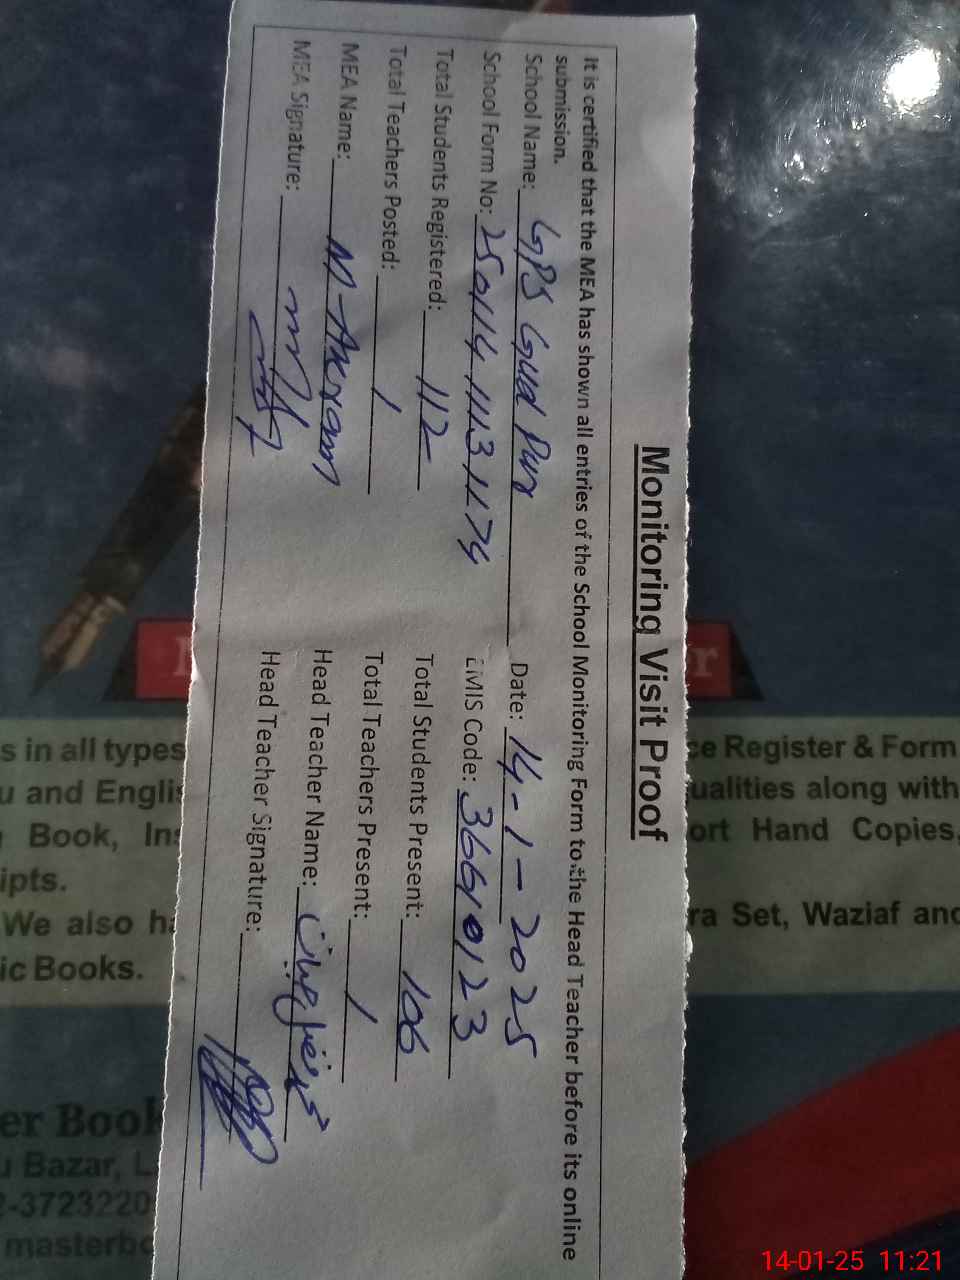 Monitoring Visit Proof
It is certified that the MEA has shown all entries of the School Monitoring Form to the Head Teacher before its online
submission.
School Name: GPS Gudpur Date: 14-1-2025
School Form No: EMIS Code: 36610123
Total Students Registered: 112 Total Students Present: 106
Total Teachers Posted: 1 Total Teachers Present: 1
MEA Name: M. Akram Head Teacher Name:
MEA Signature: Head Teacher Signature:
s in all types
u and English
Book,
ipts.
We also
ic Books.
Register & Form
ualities along with
ort Hand Copies,
ra Set, Waziaf and
er Book
u Bazar, L
2-3723220
masterbo
14-01-25 11:21